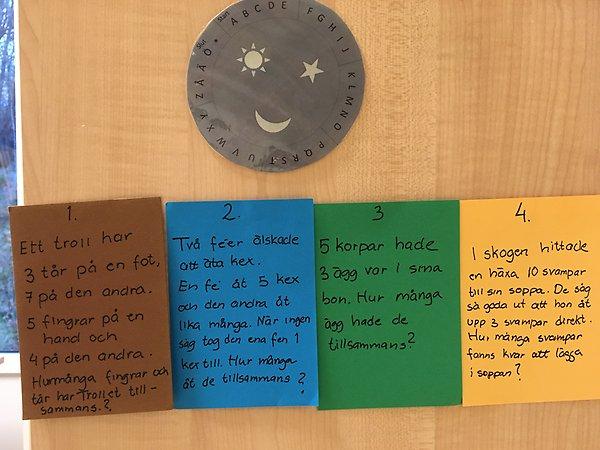 Start A B C D E F G H I J K L M N O P Q R S T U V W X Y Z Å Ä Ö • Slut
1.
Ett troll har
3 tår på en fot,
7 på den andra.
5 fingrar på en
hand och
4 på den andra.
Hurmånga fingrar och
tår har Trollet till-
sammans?
2.
Två feer älskade
att äta kex.
En fe åt 5 kex
och den andra åt
lika många. När ingen
såg tog den ena fen 1
kex till. Hur många
åt de tillsammans?
3
5 korpar hade
3 ägg var i sina
bon. Hur många
ägg hade de
tillsammans?
4.
I skogen hittade
en häxa 10 svampar
till sin soppa. De såg
så goda ut att hon åt
upp 3 svampar direkt.
Hur många svampar
fanns kvar att lägga
i soppan?